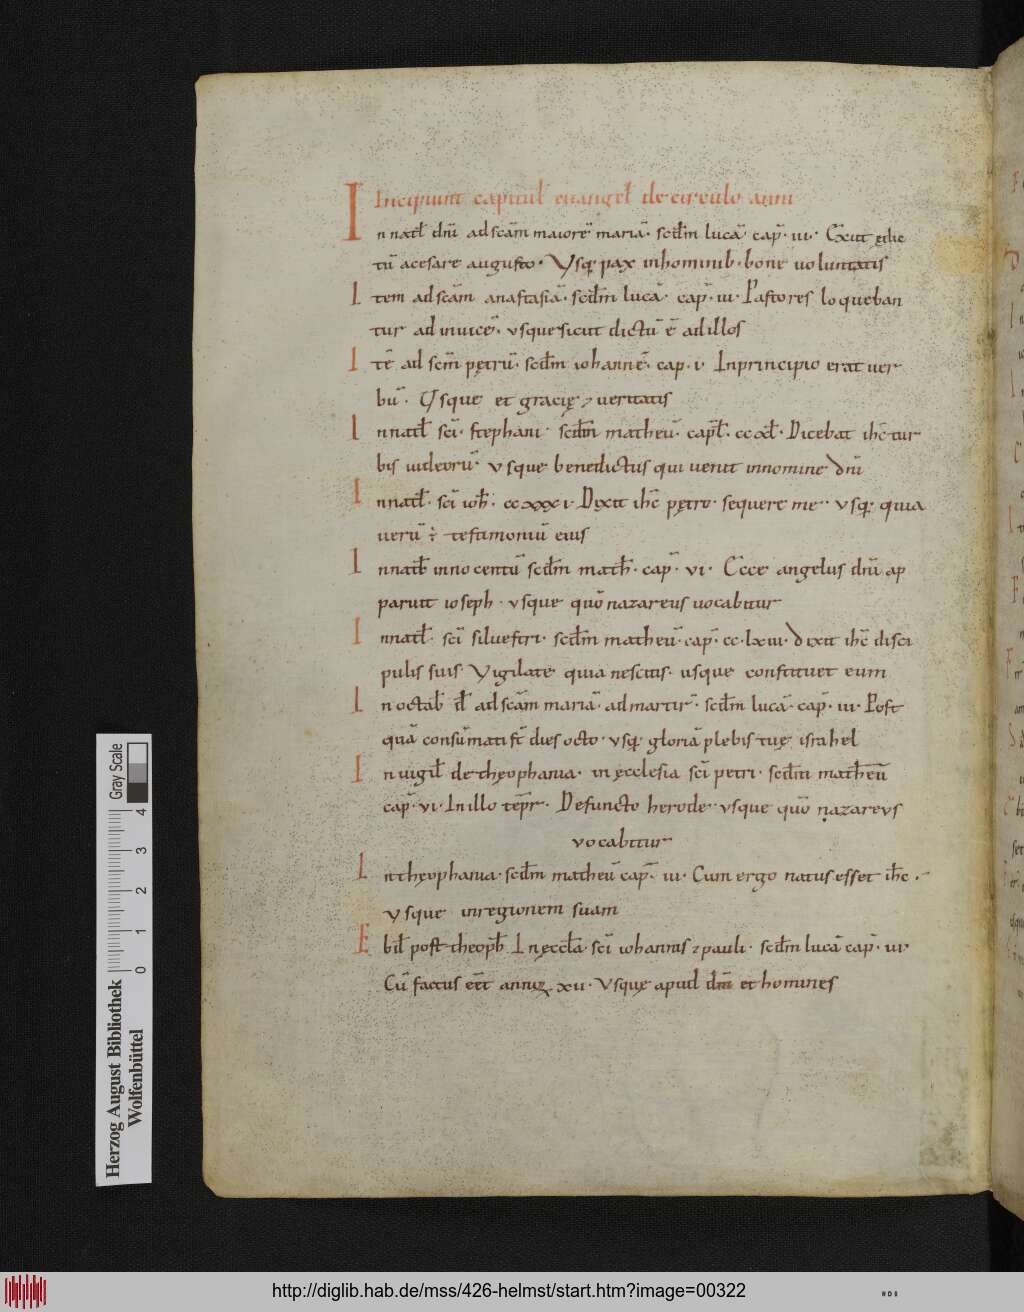 Incipiunt capitul euangel̄ de circulo anni
In natal̄ dn̄i ad scām maiorē mariā· scd̄m lucā cap̄· iii· Exiit ędic
tū a cesare augusto· Vsq; pax in hominib· bone uoluntatis
Item ad scām anastasiā· scd̄m lucā· cap̄· iii· Pastores loqueban
tur ad inuicē· vsque sicut dictū ē ad illos
Itē ad scm̄ pętrū· scd̄m iohannē· cap· i· In principio erat uer
bū· Vsque et gracię ⁊ ueritatis
In natal̄ sc̄i· stephani· scd̄m matheū· capl̄· ccxl· Dicebat ih̄c tur
bis iudeorū vsque benedictus qui uenit in nomine dn̄i
In natal̄· sc̄i ioh̄· ccxxxi· Dixit ih̄c pętro· sequere me· vsq; quia
uerū ÷ testimoniū eius
In natal̄ innocentū scd̄m math̄· cap̄· vi· Ecce angelus dn̄i ap
paruit ioseph· vsque quō nazareus uocabitur
In natal̄· sc̄i siluestri· scd̄m matheū· cap̄· cc·lxiii· dixit ih̄c disci
pulis suis Vigilate quia nescitis· usque constituet eum
In octab̄ d̄l ad scām mariā· ad martir̄· scd̄m lucā· cap̄· iii· Post
quā consūmati st̄ dies octo· vsq; gloriā plebis tuę israhel
In uigil̄ de theophania· in ęcclesia sc̄i petri· scd̄m matheū
cap̄· vi· In illo tēpr· Defuncto herode· vsque quō nazareus
vocabitur
In theophania· scd̄m matheū cap̄· iii· Cum ergo natus esset ih̄c·
Vsque in regionem suam
Ebd̄ post theoph̄ In ęccl̄a· sc̄i iohannis ⁊ pauli· scd̄m lucā cap̄· iii·
Cū factus eēt annoꝝ· xii· Vsquę apud dm̄ et homines
Herzog August Bibliothek
Wolfenbüttel
0 1 2 3 4
Gray Scale
http://diglib.hab.de/mss/426-helmst/start.htm?image=00322